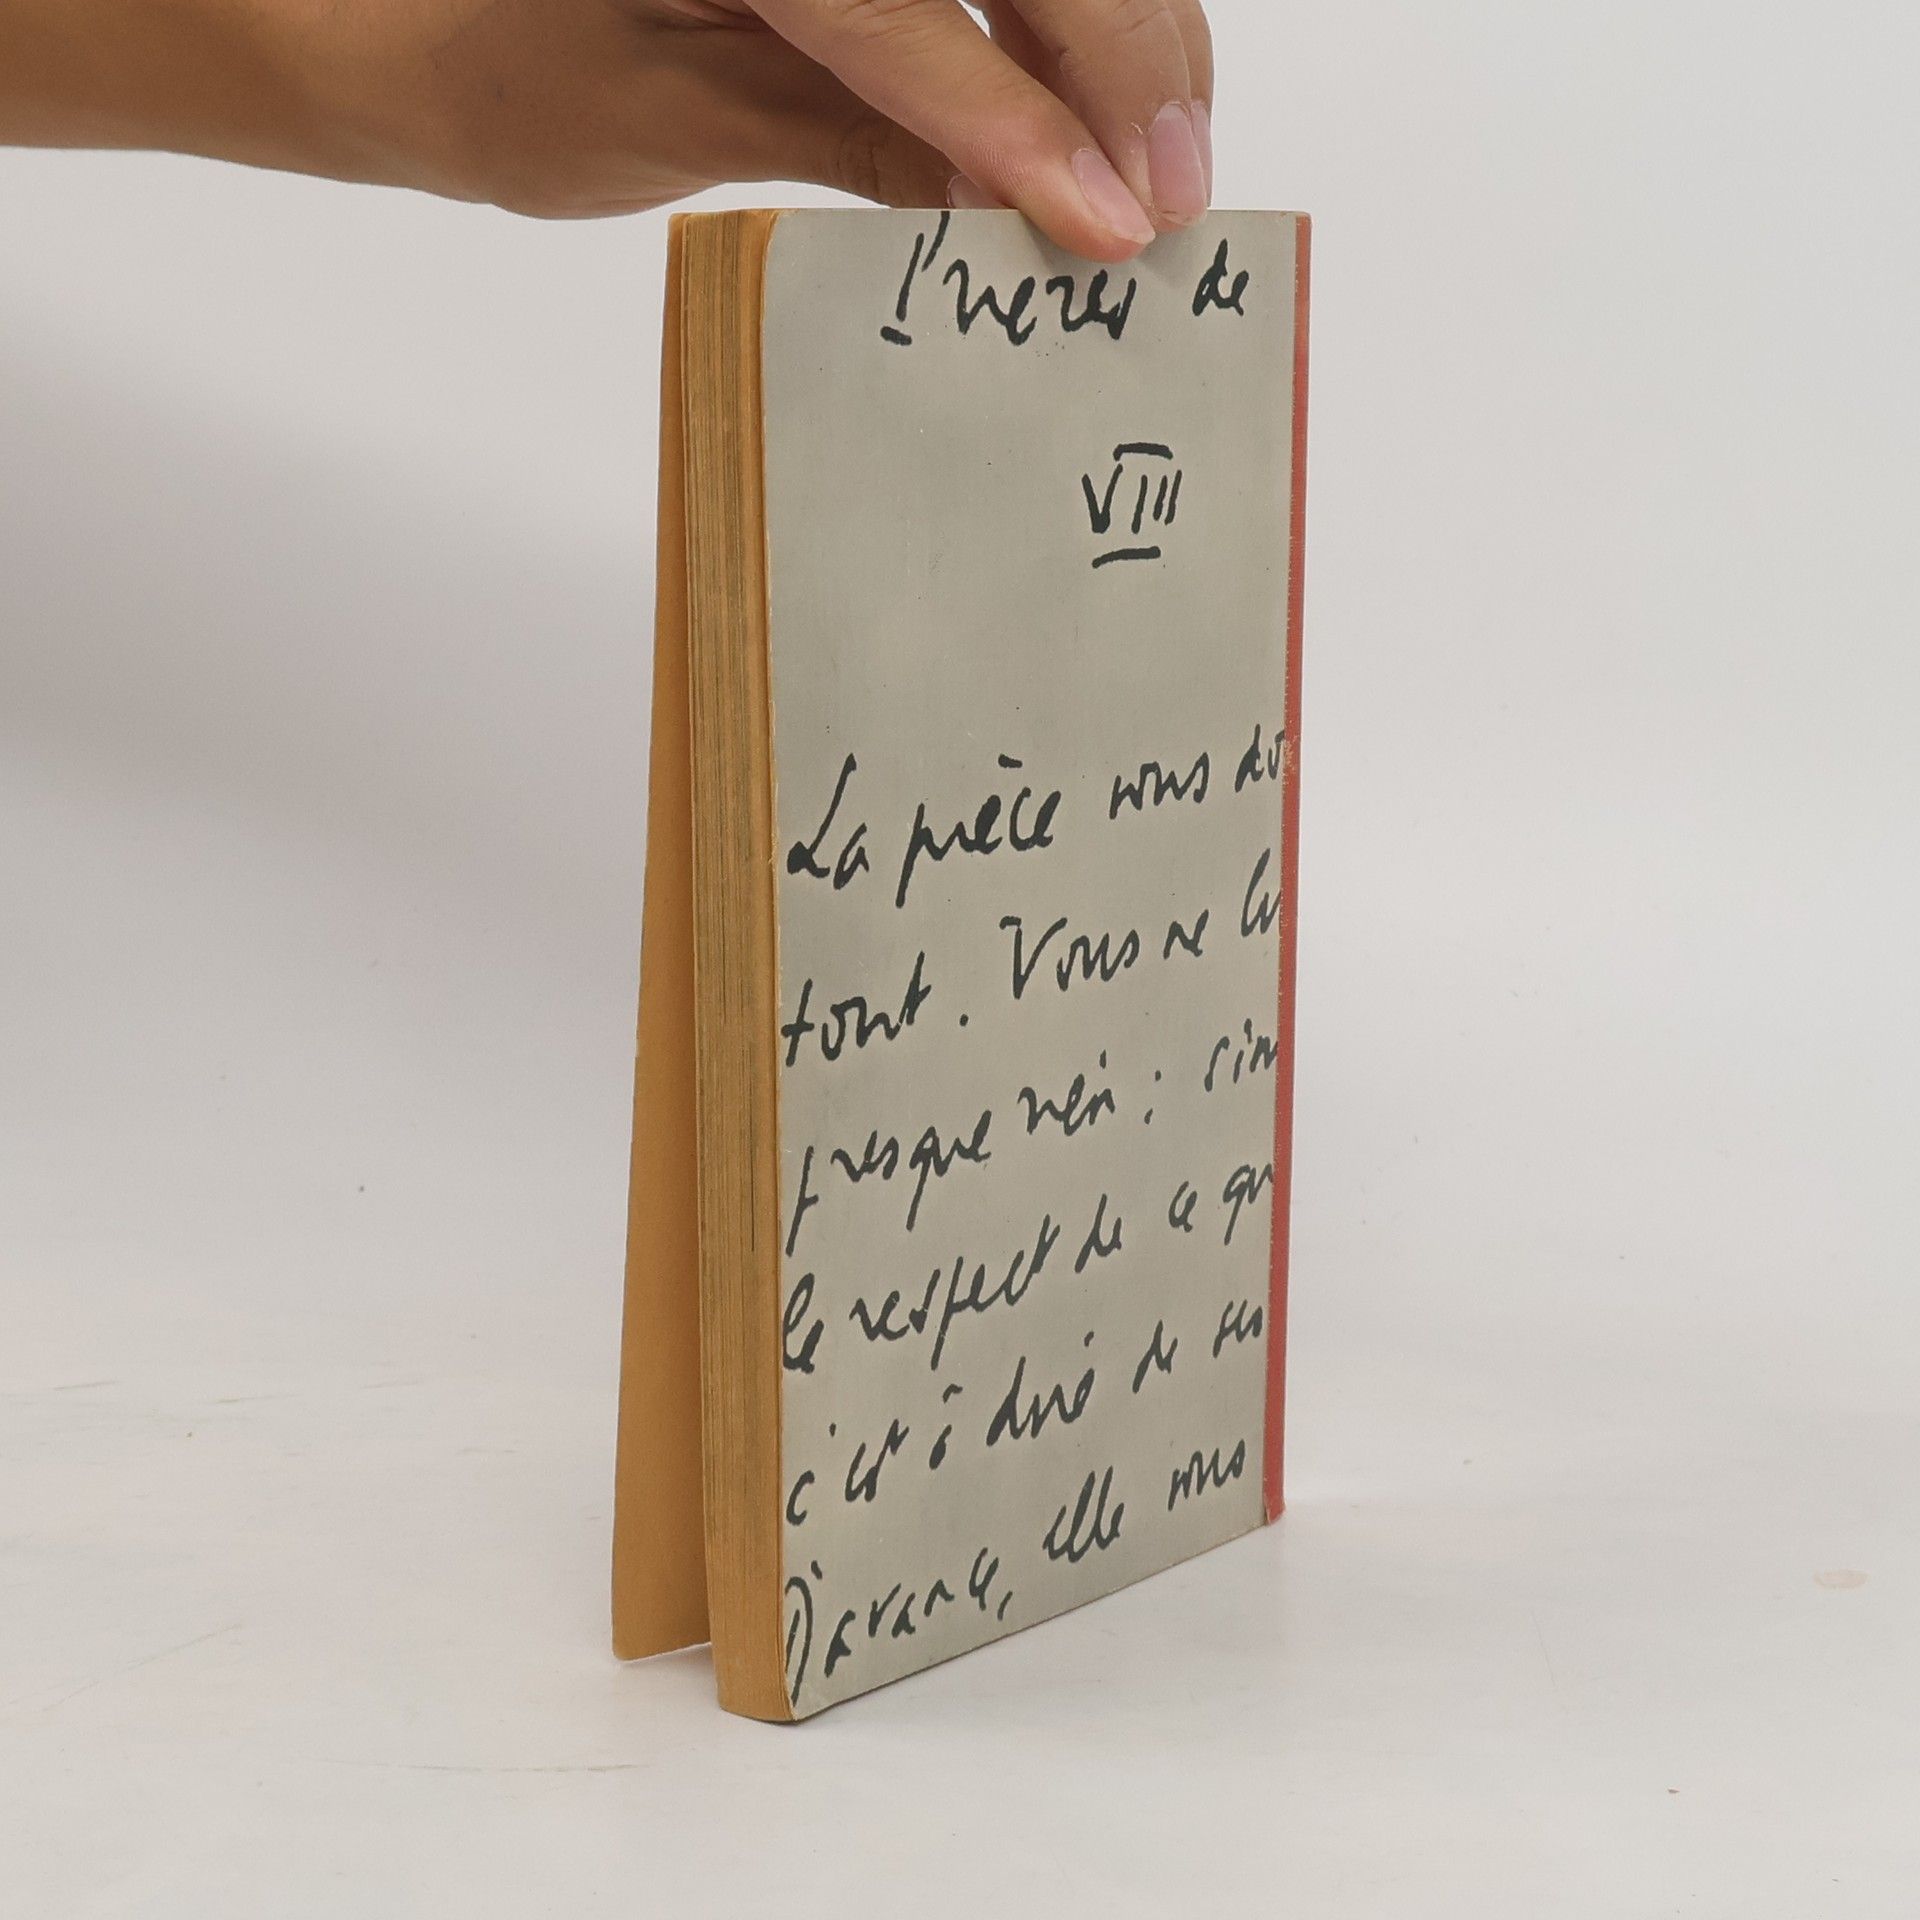 de
VIII
La pièce vous do
tout. Vous ne lu
presque rien ; sin
le respect de ce qu
c'est à dire de ses
D'avance, elle vous